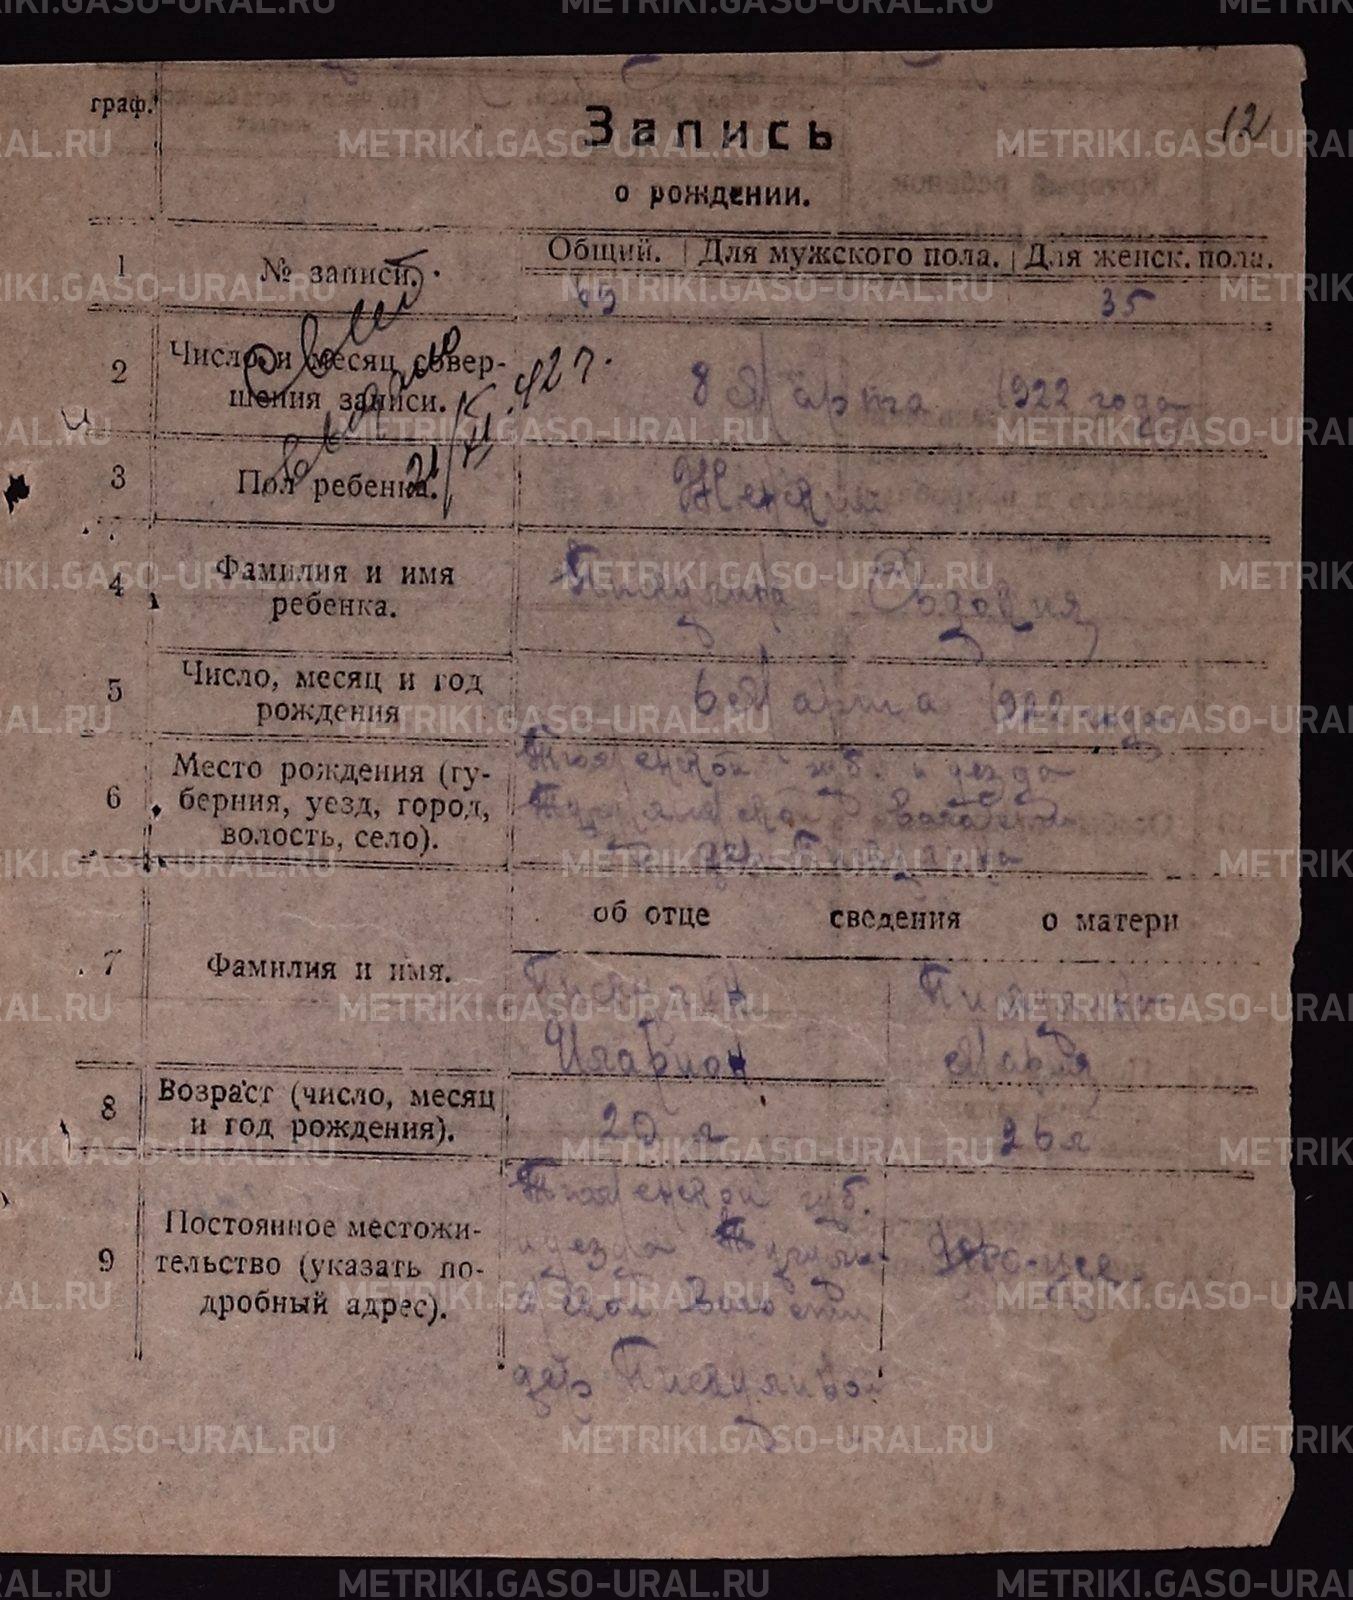 12
граф.
Запись
о рождении.
1
№ записи.
Общий. Для мужского пола. Для женск. пола.
65 35
2
Число и месяц совер-
шения записи.
8 Марта 1922 года
21/XI 42 г.
3
Пол ребенка.
Женск
4
Фамилия и имя
ребенка.
Пискулина
5
Число, месяц и год
рождения
6 Марта 1922 года
6
Место рождения (гу-
берния, уезд, город,
волость, село).
Тюменской губ. уезда
волости
об отце сведения о матери
7
Фамилия и имя.
Пискулин
Иларион
Пискулина
Мария
8
Возраст (число, месяц
и год рождения).
20 л
26 л
9
Постоянное местожи-
тельство (указать по-
дробный адрес).
Тюменской губ.
уезда
ской волости
дер Пискулиной
METRIKI.GASO-URAL.RU